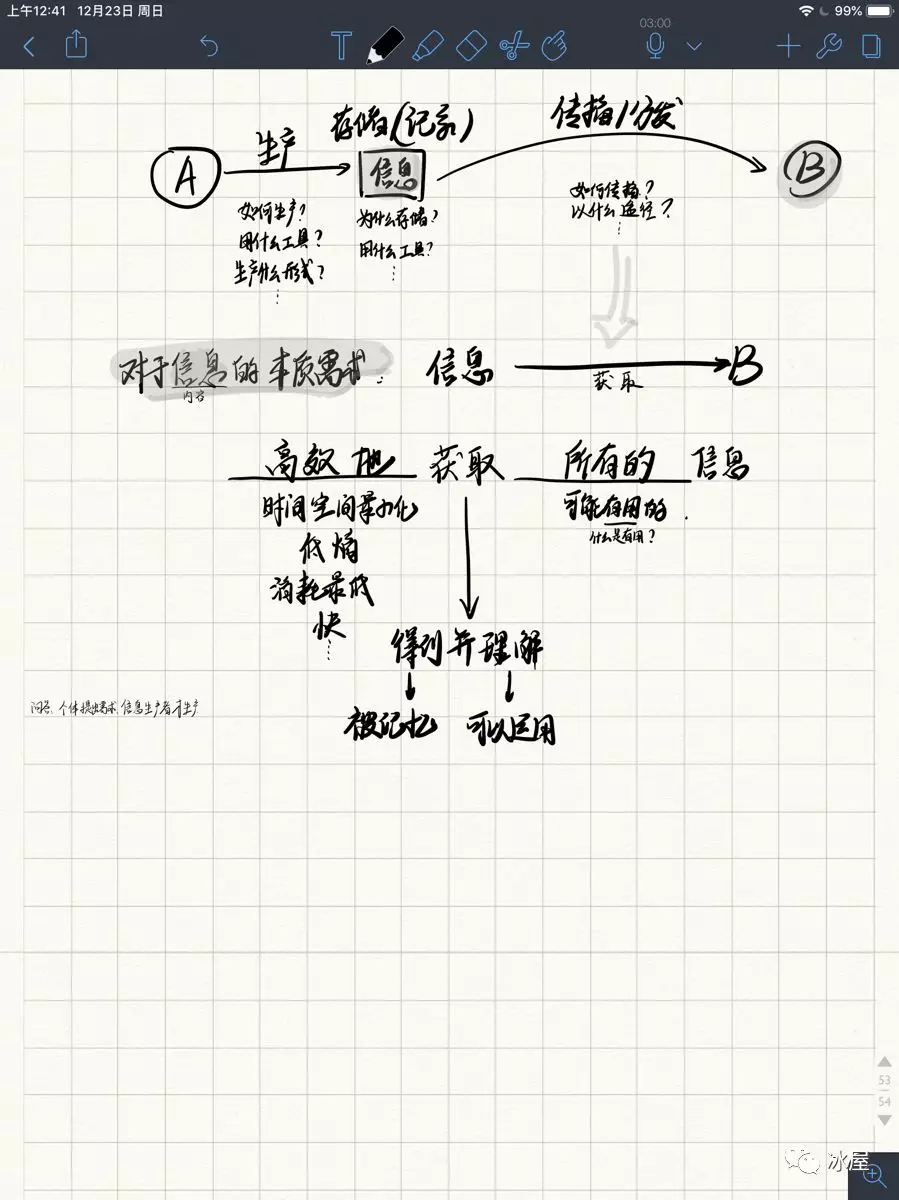 上午12:41 12月23日 周日
99%
03:00
存储(记录)
传播/分发
生产
A
信息
B
如何生产?
用什么工具?
生产什么形式?
⋮
为什么存储?
用什么工具?
⋮
如何传播?
以什么途径?
⋮
对于信息的本质需求:
内容
信息
获取
B
高效地 获取 所有的 信息
时间空间最小化
低熵
消耗最低
快
⋮
可能有用的
什么是有用?
得到并理解
被记忆 可以运用
问答:个体提出需求,信息生产者才生产
53
54
冰屋